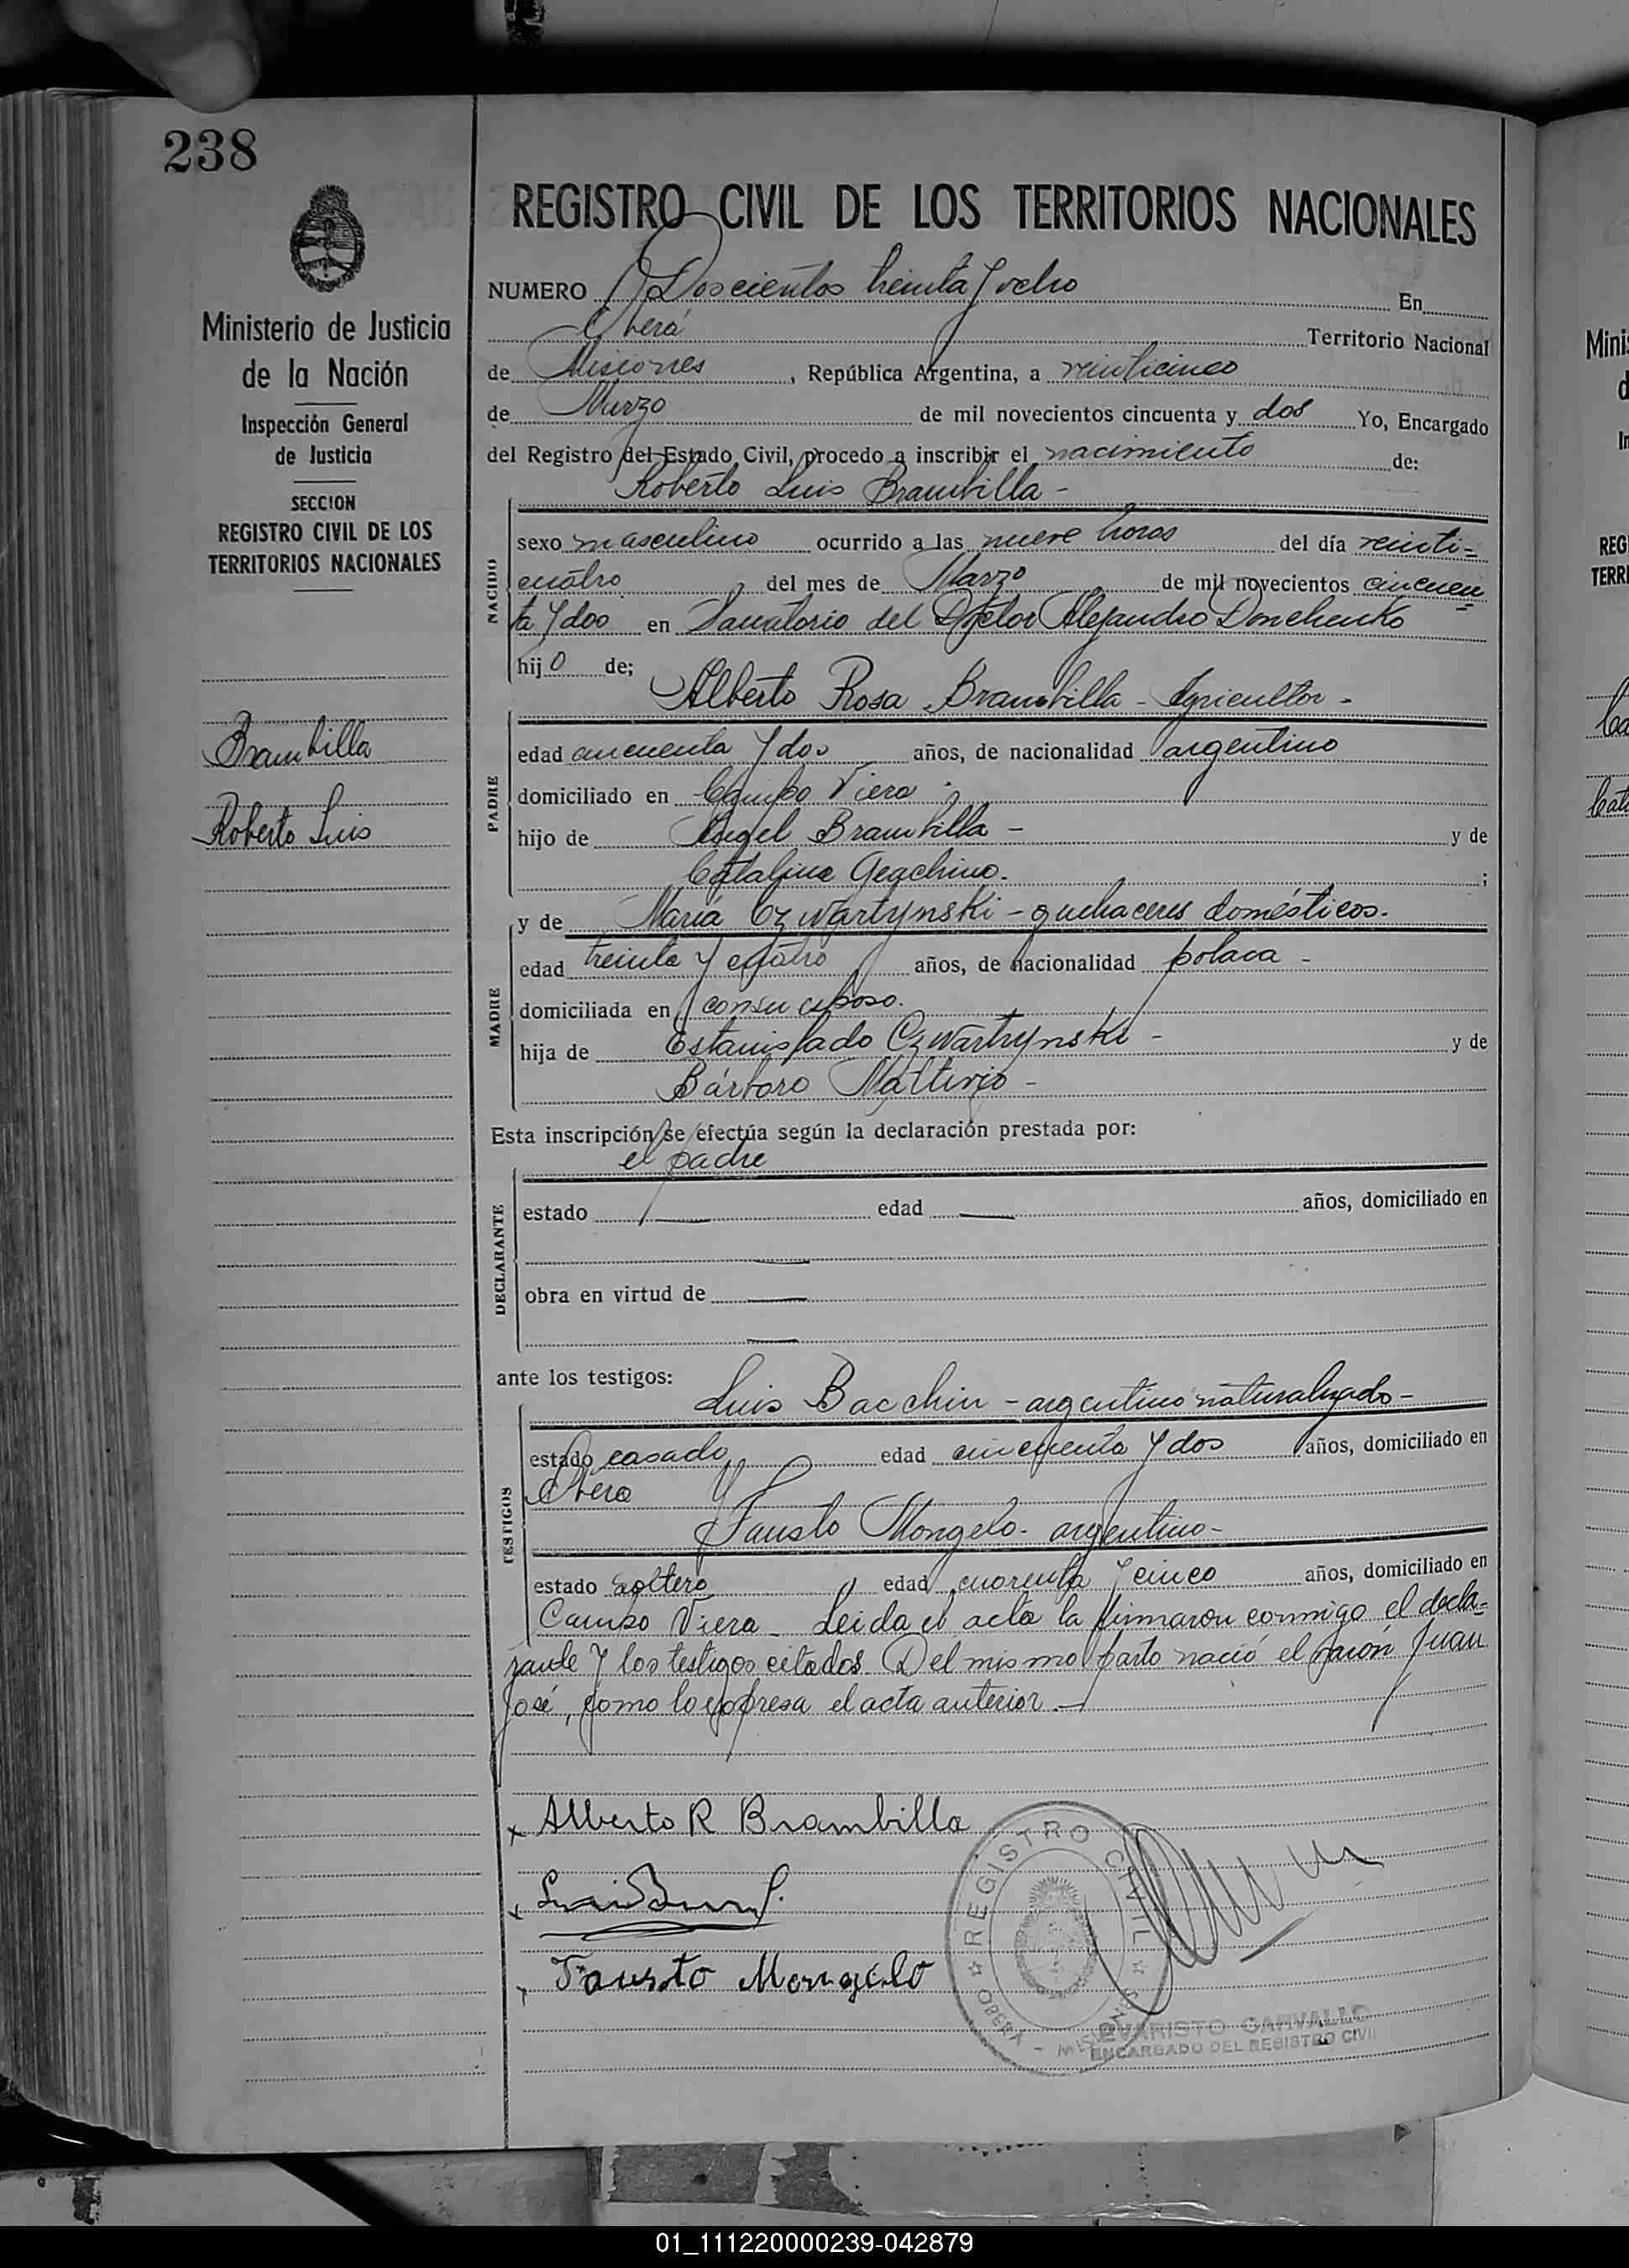 238
REGISTRO CIVIL DE LOS TERRITORIOS NACIONALES
Ministerio de Justicia
de la Nación
Inspección General
de Justicia
SECCION
REGISTRO CIVIL DE LOS
TERRITORIOS NACIONALES
Brambilla
Roberto Luis
NUMERO Doscientos treinta y ocho En
Oberá Territorio Nacional
de Misiones, República Argentina, a veinticinco
de Marzo de mil novecientos cincuenta y dos Yo, Encargado
del Registro del Estado Civil, procedo a inscribir el nacimiento de:
Roberto Luis Brambilla -
NACIDO
sexo masculino ocurrido a las nueve horas del día veinti=
cuatro del mes de Marzo de mil novecientos cincuen=
ta y dos en Sanatorio del Doctor Alejandro Donchenko
hijo de;
Alberto Rosa Brambilla - Agricultor -
PADRE
edad cincuenta y dos años, de nacionalidad argentino
domiciliado en Campo Viera
hijo de Angel Brambilla - y de
Catalina ;
y de María Czwartynski - quehaceres domésticos.
MADRE
edad treinta y cuatro años, de nacionalidad polaca -
domiciliada en con su esposo.
hija de Estanislado Czwartrynski - y de
Bárbara -
Esta inscripción se efectúa según la declaración prestada por:
el padre
DECLARANTE
estado — edad — años, domiciliado en
—
obra en virtud de —
—
ante los testigos:
Luis Bacchin - argentino naturalizado -
TESTIGOS
estado casado edad cincuenta y dos años, domiciliado en
Oberá
Fausto Mongelo - argentino -
estado soltero edad cuarenta y cinco años, domiciliado en
Campo Viera - Leida el acta la firmaron conmigo el decla-
rante y los testigos citados. Del mismo parto nació el varón Juan
José, como lo expresa el acta anterior. -
x Alberto R Brambilla
x
Fausto Mongelo
REGISTRO CIVIL
OBERA - MISIONES
EVARISTO CARVALLO
ENCARGADO DEL REGISTRO CIVIL
Mini
REG
TERRI
01_111220000239-042879